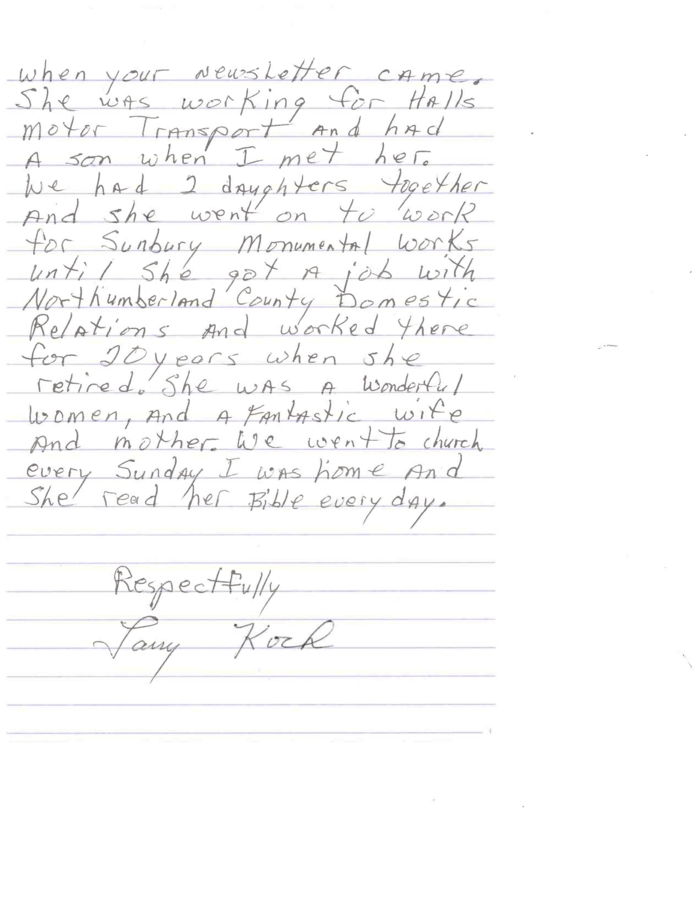 when your newsletter came.
She was working for Halls
Motor Transport and had
A son when I met her.
We had 2 daughters together
And she went on to work
for Sunbury Monumental works
until she got A job with
Northumberland County Domestic
Relations And worked there
for 20 years when she
retired. She was A wonderful
women, And A Fantastic wife
And mother. We went to church
every Sunday I was home And
She read her Bible every day.
Respectfully
Larry Koch